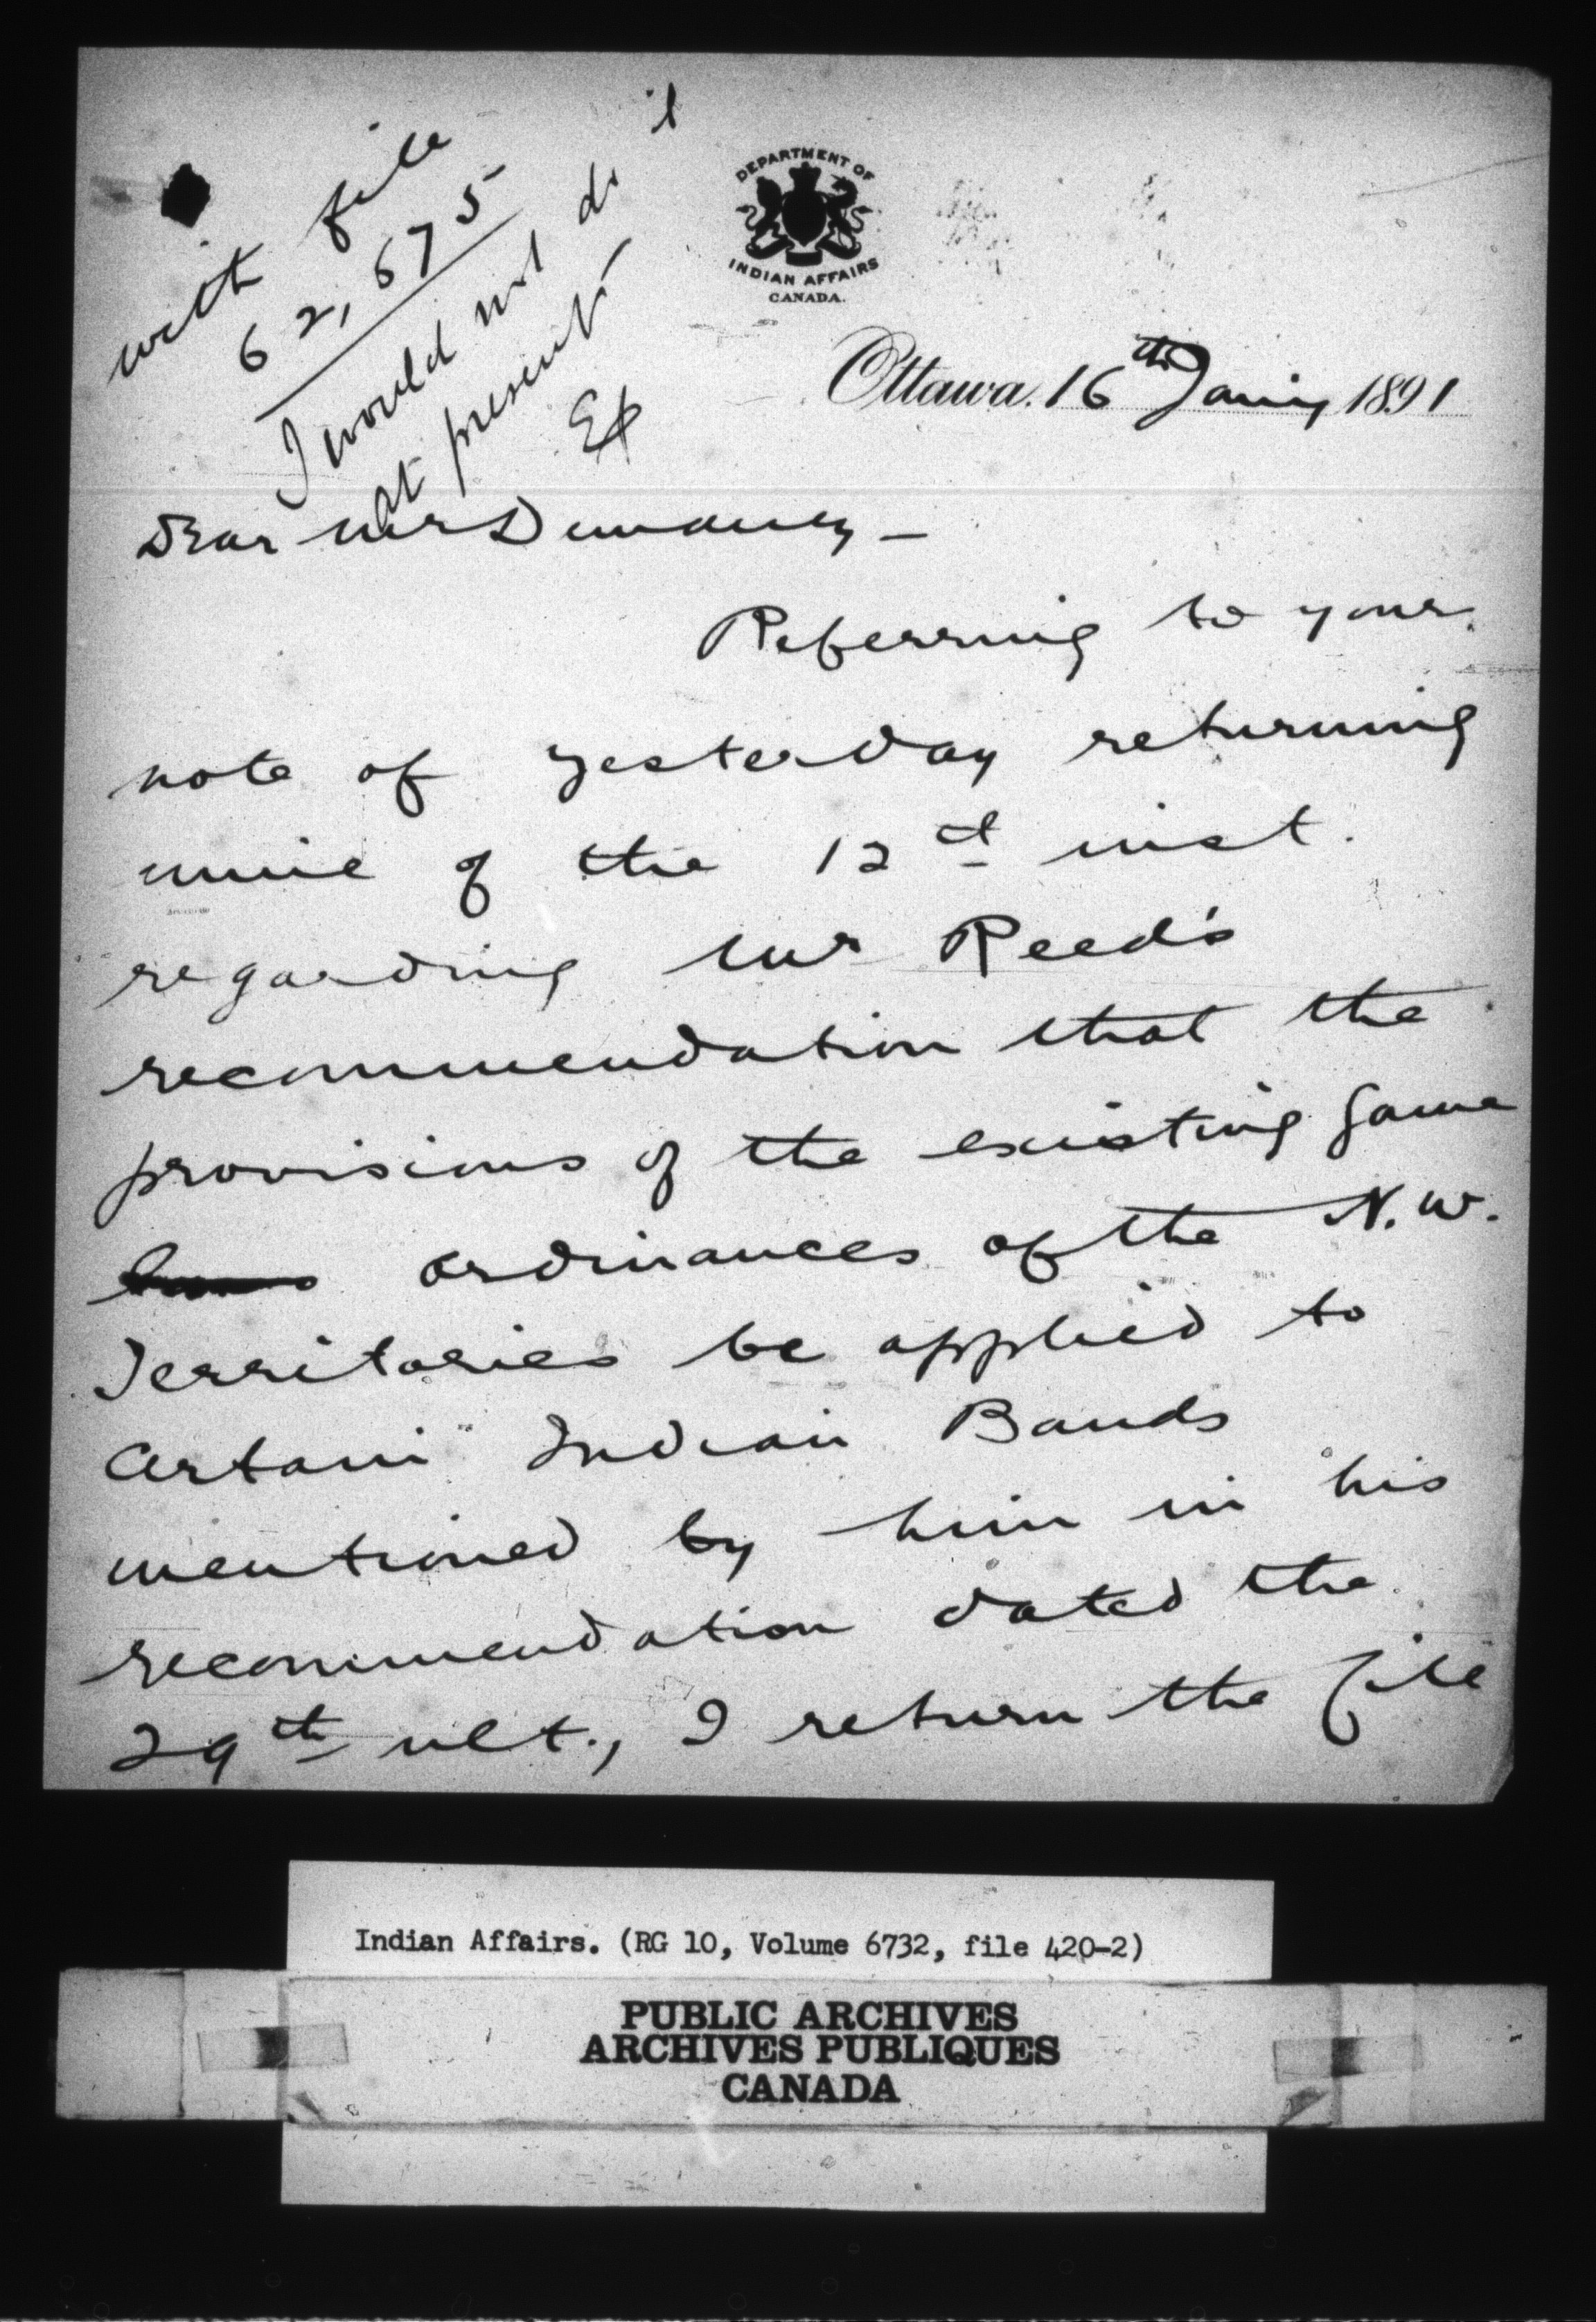 with file
62,675
I would not do it
at present
DEPARTMENT OF
INDIAN AFFAIRS
CANADA.
Ottawa. 16th Jany 1891
Dear Mr
Referring to your
note of yesterday returning
mine of the 12th inst.
regarding Mr Reed's
recommendation that the
provisions of the existing Game
ordinances of the N.W.
Territories be applied to
Certain Indian Bands
mentioned by him in his
recommendation dated the
29th ult., I return the file
Indian Affairs. (RG 10, Volume 6732, file 420-2)
PUBLIC ARCHIVES
ARCHIVES PUBLIQUES
CANADA